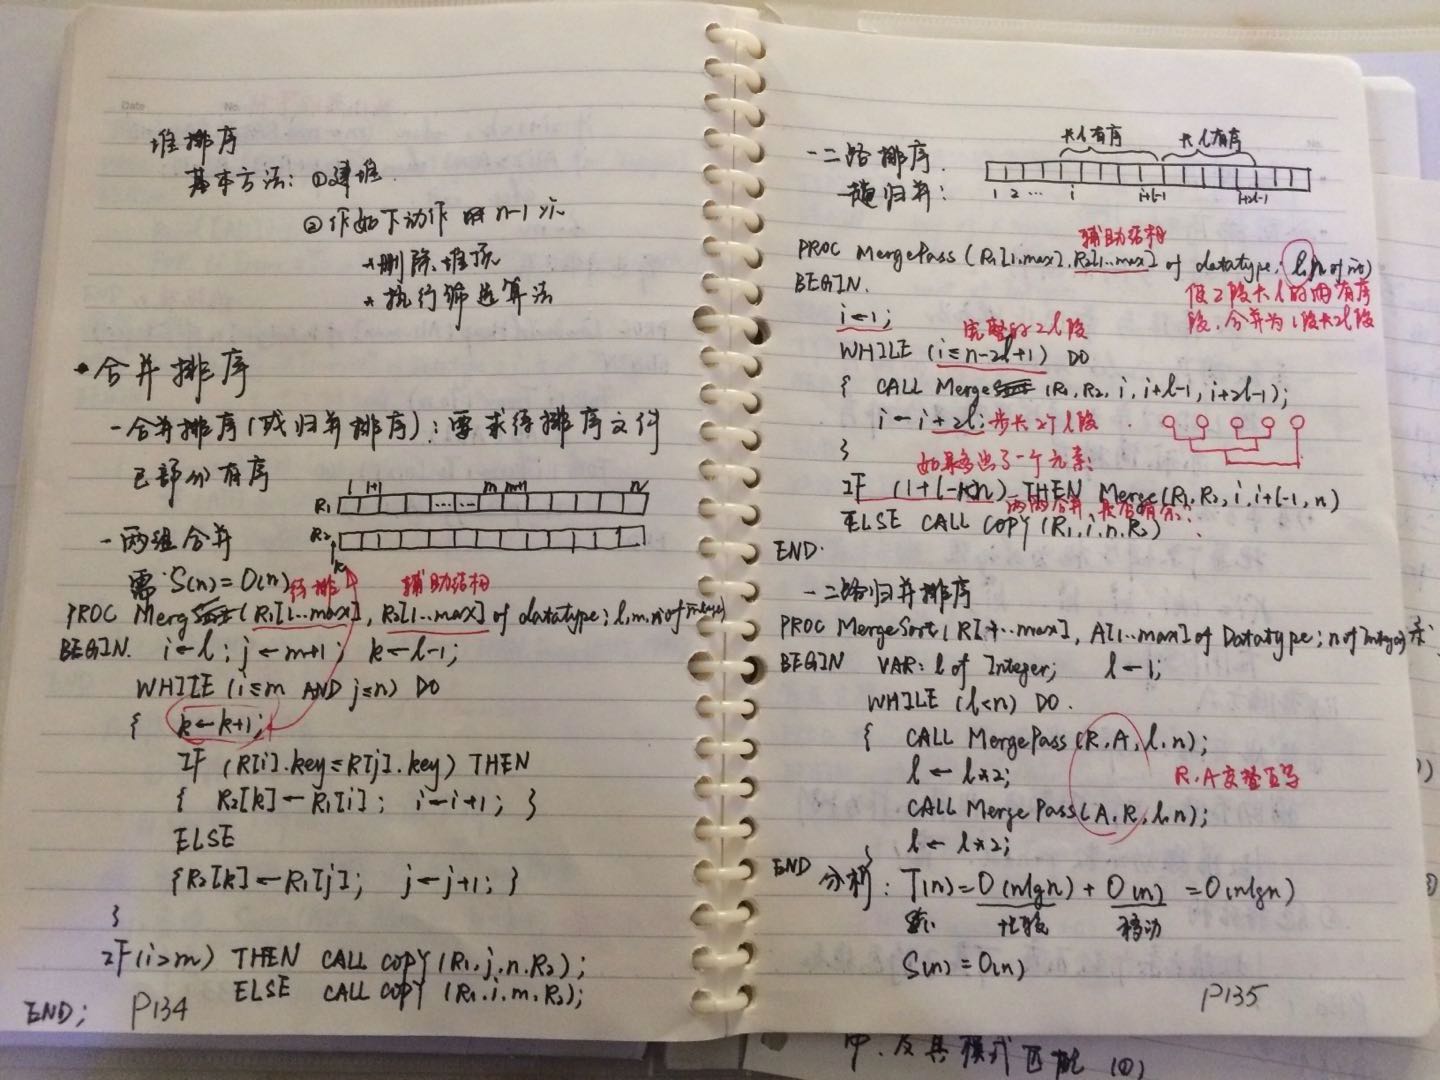 Date No.
堆排序
基本方法: ①建堆.
②作如下动作 n-1 次
*删除堆顶
*执行筛选算法
• 合并排序
- 合并排序(或归并排序): 要求待排序文件
已部分有序
1 i+1 m m+1 n
R1 ......
- 两组合并
R2
k
需 S(n)=O(n)
待排 辅助结构
PROC Merge (R1[1..max], R2[1..max] of datatype; l,m,n of integer)
BEGIN. i←l; j←m+1; k←l-1;
WHILE (i≤m AND j≤n) DO
{ k←k+1;
IF (R[i].key≤R[j].key) THEN
{ R2[k]←R1[i]; i←i+1; }
ELSE
{R2[k]←R1[j]; j←j+1; }
}
IF(i>m) THEN CALL COPY (R1,j,n,R2);
ELSE CALL COPY (R1,i,m,R2);
END; P134
长l有序 长l有序
- 二路排序.
1 2 ... i i+l-1 i+2l-1
一趟归并:
辅助结构
PROC MergePass (R1[1..max], R2[1..max] of datatype; l,n of int)
BEGIN.
段2段长l的两有序
i←1;
段,合并为1段长2l段
完整的2l段
WHILE (i≤n-2l+1) DO
{ CALL Merge (R1,R2,i,i+l-1,i+2l-1);
i←i+2l; 步长2个l段
}
如果多出了一个元素:
IF (i+l-1<n) THEN Merge(R1,R2,i,i+l-1,n)
两两合并,
ELSE CALL COPY (R1,i,n,R2)
END.
- 二路归并排序
PROC MergeSort (R[1..max], A[1..max] of Datatype; n of Integer);
BEGIN VAR: l of Integer; l←1;
WHILE (l<n) DO.
{ CALL MergePass (R,A,l,n);
l←l*2;
R,A交替
CALL MergePass(A,R,l,n);
l←l*2;
}
END
分析: T(n)=O(nlgn)+O(n)=O(nlgn)
比较 移动
S(n)=O(n)
P135
中.及其模式匹配 (①)